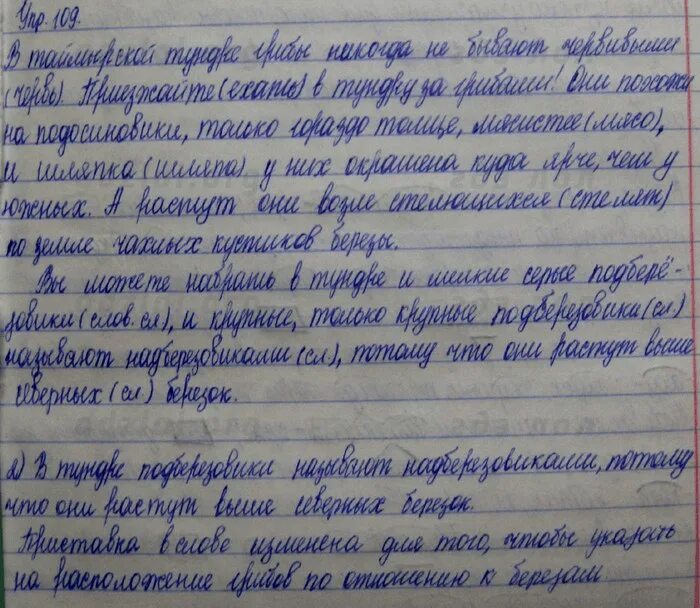 Упр. 109.
В таймырской тундре грибы никогда не бывают червивыми
(червь). Приезжайте (ехать) в тундру за грибами! Они похожи
на подосиновики, только гораздо толще, мясистее (мясо),
и шляпка (шляпа) у них окрашена куда ярче, чем у
южных. А растут они возле стелющихся (стелят)
по земле чахлых кустиков березы.
Вы можете набрать в тундре и мелкие серые подберё-
зовики (слов. сл), и крупные, только крупные подберезовики (сл.)
называют надберезовиками (сл.), потому что они растут выше
северных (сл.) березок.
2) В тундре подберезовики называют надберезовиками, потому
что они растут выше северных березок.
Приставка в слове изменена для того, чтобы указать
на расположение грибов по отношению к березам.